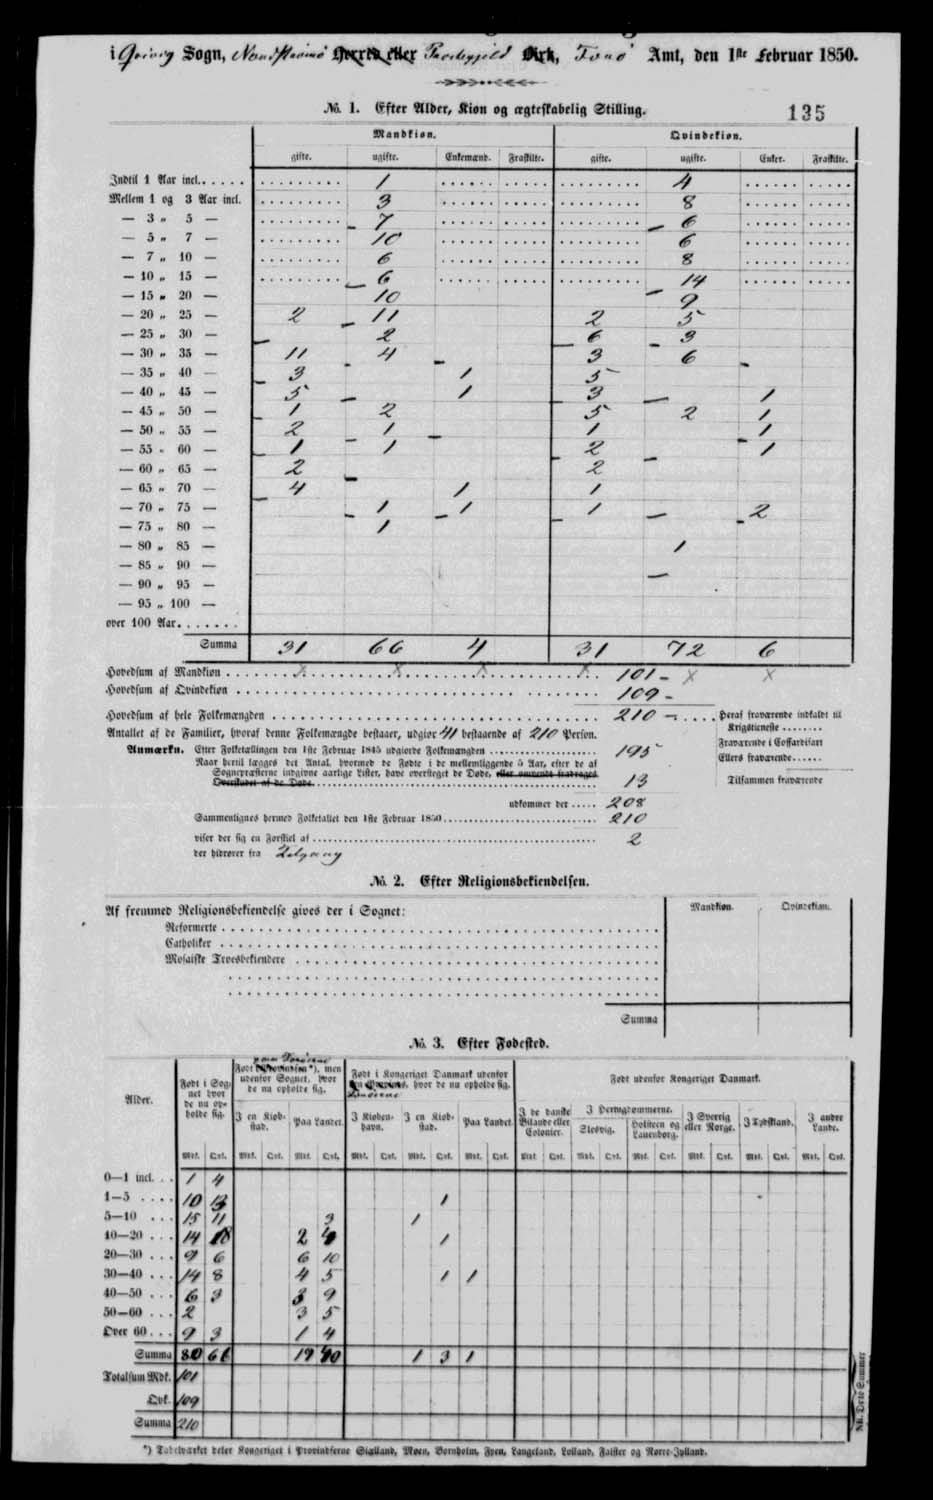 i Qvivig Sogn, Nordstrømø Herred eller Præstegjeld Birk, Færø Amt, den 1ste Februar 1850.
No. 1. Efter Alder, Kion og ægteskabelig Stilling.
135
Mandkion. Qvindekion.
gifte. ugifte. Enkemænd. Fraskilte. gifte. ugifte. Enker. Fraskilte.
Indtil 1 Aar incl. 1 4
Mellem 1 og 3 Aar incl. 3 8
— 3 „ 5 — 7 6
— 5 „ 7 — 10 6
— 7 „ 10 — 6 8
— 10 „ 15 — 6 14
— 15 „ 20 — 10 9
— 20 „ 25 — 2 11 2 5
— 25 „ 30 — 2 6 3
— 30 „ 35 — 11 4 3 6
— 35 „ 40 — 3 1 5
— 40 „ 45 — 5 1 3 1
— 45 „ 50 — 1 2 5 2 1
— 50 „ 55 — 2 1 1 1
— 55 „ 60 — 1 1 2 1
— 60 „ 65 — 2 2
— 65 „ 70 — 4 1 1
— 70 „ 75 — 1 1 1 2
— 75 „ 80 — 1
— 80 „ 85 — 1
— 85 „ 90 —
— 90 „ 95 —
— 95 „ 100 —
over 100 Aar.
Summa 31 66 4 31 72 6
Hovedsum af Mandkion 101
Hovedsum af Qvindekion 109
Hovedsum af hele Folkemængden 210 Heraf fraværende indkaldt til
Krigstieneste
Antallet af de Familier, hvoraf denne Folkemængde bestaaer, udgiør 41 bestaaende af 210 Person.
Fraværende i Coffardifart
Anmærkn. Efter Folketællingen den 1ste Februar 1845 udgiorde Folkemængden 195
Ellers fraværende
Naar hertil lægges det Antal, hvormed de Fødte i de mellemliggende 5 Aar, efter de af
Sognepræsterne indgivne aarlige Lister, have oversteget de Døde, eller omvendt fradrages
Tilsammen fraværende
Overskudet af de Døde 13
udkommer der 208
Sammenlignes hermed Folketallet den 1ste Februar 1850 210
viser der sig en Forskiel af 2
der hidrører fra Tilgang
No. 2. Efter Religionsbekiendelsen.
Af fremmed Religionsbekiendelse gives der i Sognet: Mandkion. Qvindekion.
Reformerte
Catholiker
Mosaiske Troesbekiendere
Summa
No. 3. Efter Fødested.
Alder.
Født i Sognet hvor de nu opholde sig.
paa Færøerne
Født i Provindsen*), men udenfor Sognet, hvor de nu opholde sig.
Født i Kongeriget Danmark udenfor den Provinds, hvor de nu opholde sig.
Færøerne
Født udenfor Kongeriget Danmark.
I en Kiøbstad. Paa Landet. I Kiøbenhavn. I en Kiøbstad. Paa Landet. I de danske Bilande eller Colonier. I Hertugdømmerne. Slesvig. Holsteen og Lauenborg. I Sverrig eller Norge. I Tydskland. I andre Lande.
Mdk. Qvk. Mdk. Qvk. Mdk. Qvk. Mdk. Qvk. Mdk. Qvk. Mdk. Qvk. Mdk Qvk. Mdk. Qvk. Mdk. Qvk. Mdk. Qvk. Mdk. Qvk. Mdk. Qvk.
0—1 incl. 1 4
1—5 10 13 1
5—10 15 11 3 1
10—20 14 18 2 4 1
20—30 9 6 6 10
30—40 14 8 4 5 1 1
40—50 6 3 3 9
50—60 2 3 5
Over 60 9 3 1 4
Summa 80 66 19 40 1 3 1
Totalsum Mdk. 101
Qvk. 109
Summa 210
*) Tabelværket deler Kongeriget i Provindserne Siælland, Møen, Bornholm, Fyen, Langeland, Lolland, Falster og Nørre-Jylland.